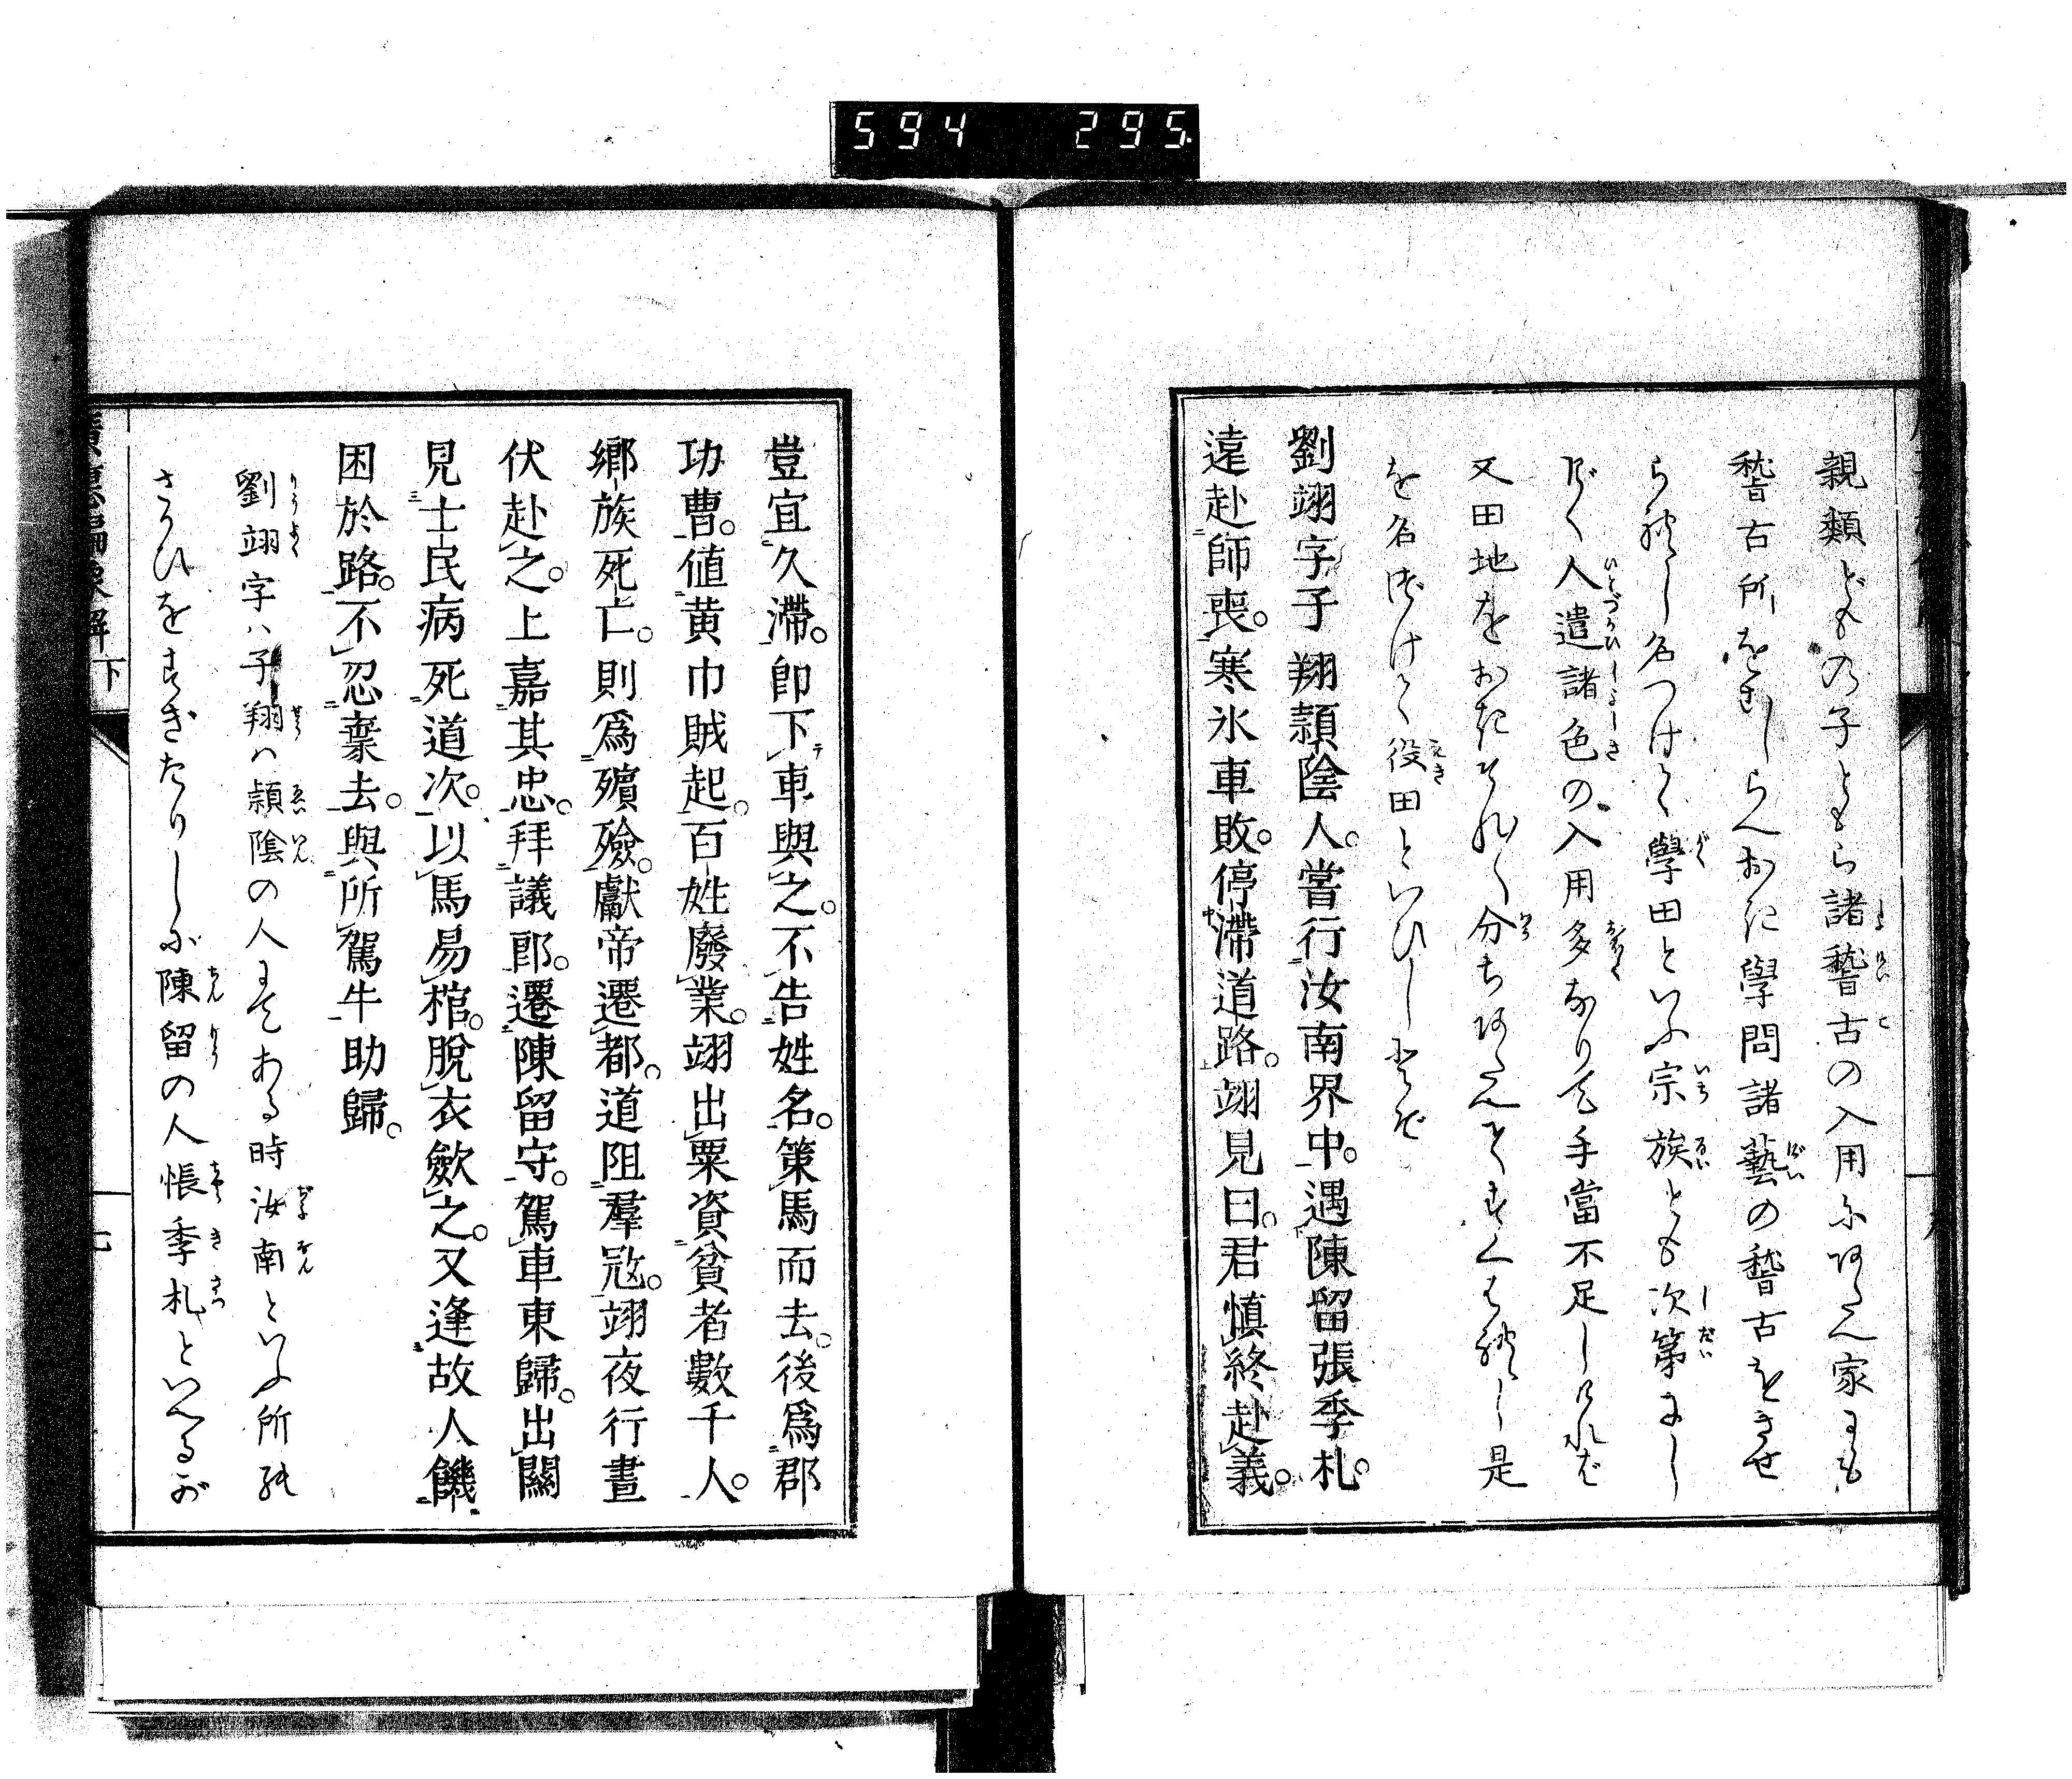 594 295
親類どもの子ともら諸稽古の入用にあたへ家にも
稽古所をむしらへおきに學問諸藝の稽古をさせ
名つけて學田といふ宗族とも次第に
人遣諸色の入用多なりて手當不足しければ
又田地をおきそれ〳〵分ちあたへ
を名づけて役田といひしとぞ
劉翊字子翔頴陰人。嘗行汝南界中。遇陳留張季札。
遠赴師喪。寒氷車敗。停滯道路。翊見曰。君愼終赴義。
豈宜久滯。卽下車與之。不告姓名。策馬而去。後爲郡
功曹。値黄巾賊起。百姓廢業。翊出粟資貧者數千人。
鄉族死亡。則爲殯殮。獻帝遷都。道阻羣寇。翊夜行晝
伏赴之。上嘉其忠。拜議郎。遷陳留守。駕車東歸。出關
見士民病死道次。以馬易棺。脫衣斂之。又逢故人饑
困於路。不忍棄去。與所駕牛助歸。
劉翊字ハ子翔ハ頴陰の人にてある時汝南といふ所の
さかひをすぎたりしに陳留の人悵季札といへるが
下
七